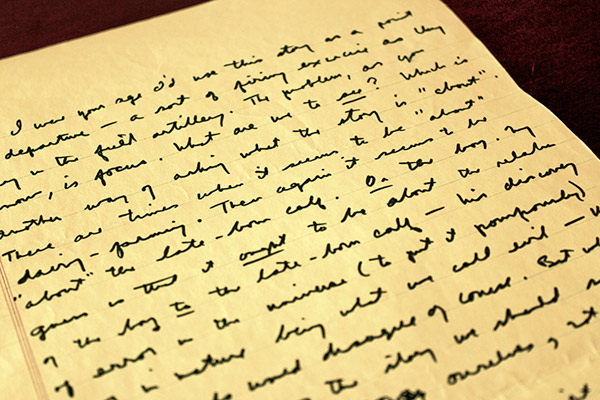 I were your age I'd use this story as a point
departure — a sort of firing exercise as they
in the field artillery. The problem, as you
now, is focus. What are we to see? Which is
another way of asking what the story is "about".
There are times when it seems to be "about"
dairy-farming. Then again it seems to be
"about" the late-born calf. Or the boy. My
guess is that it ought to be about the relatio
of the boy to the late-born calf — his discovery
of error in the universe (to put it pompously)
in nature being what we call evil —
would disagree of course. But
the story we should
ourselves, not